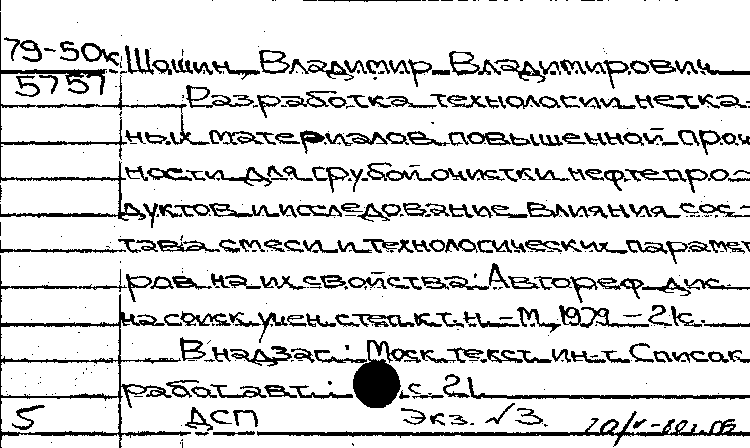 79-50к Шашин, Владимир Владимирович
5757 Разработка технологии нетка-
ных материалов повышенной проч
ности для грубой очистки нефтепро-
дуктов и исследование влияния сос-
тава смеси и технологических парамет
ров на их свойства: Автореф. дис.
на соиск. учен. степ. к.т.н. - М., 1979. - 21с.
В надзаг.: Моск. текст. ин-т. Список
работ авт.: с. 21
5 ДСП Экз. №3